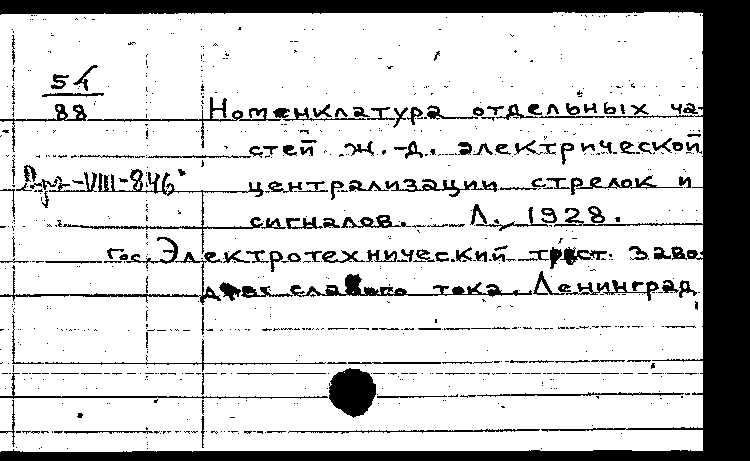 54
88
Номенклатура отдельных ча-
стей ж.-д. электрической
Арх-VIII-846
централизации стрелок и
сигналов. Л., 1928.
Гос. Электротехнический трест заво-
дов слабого тока. Ленинград